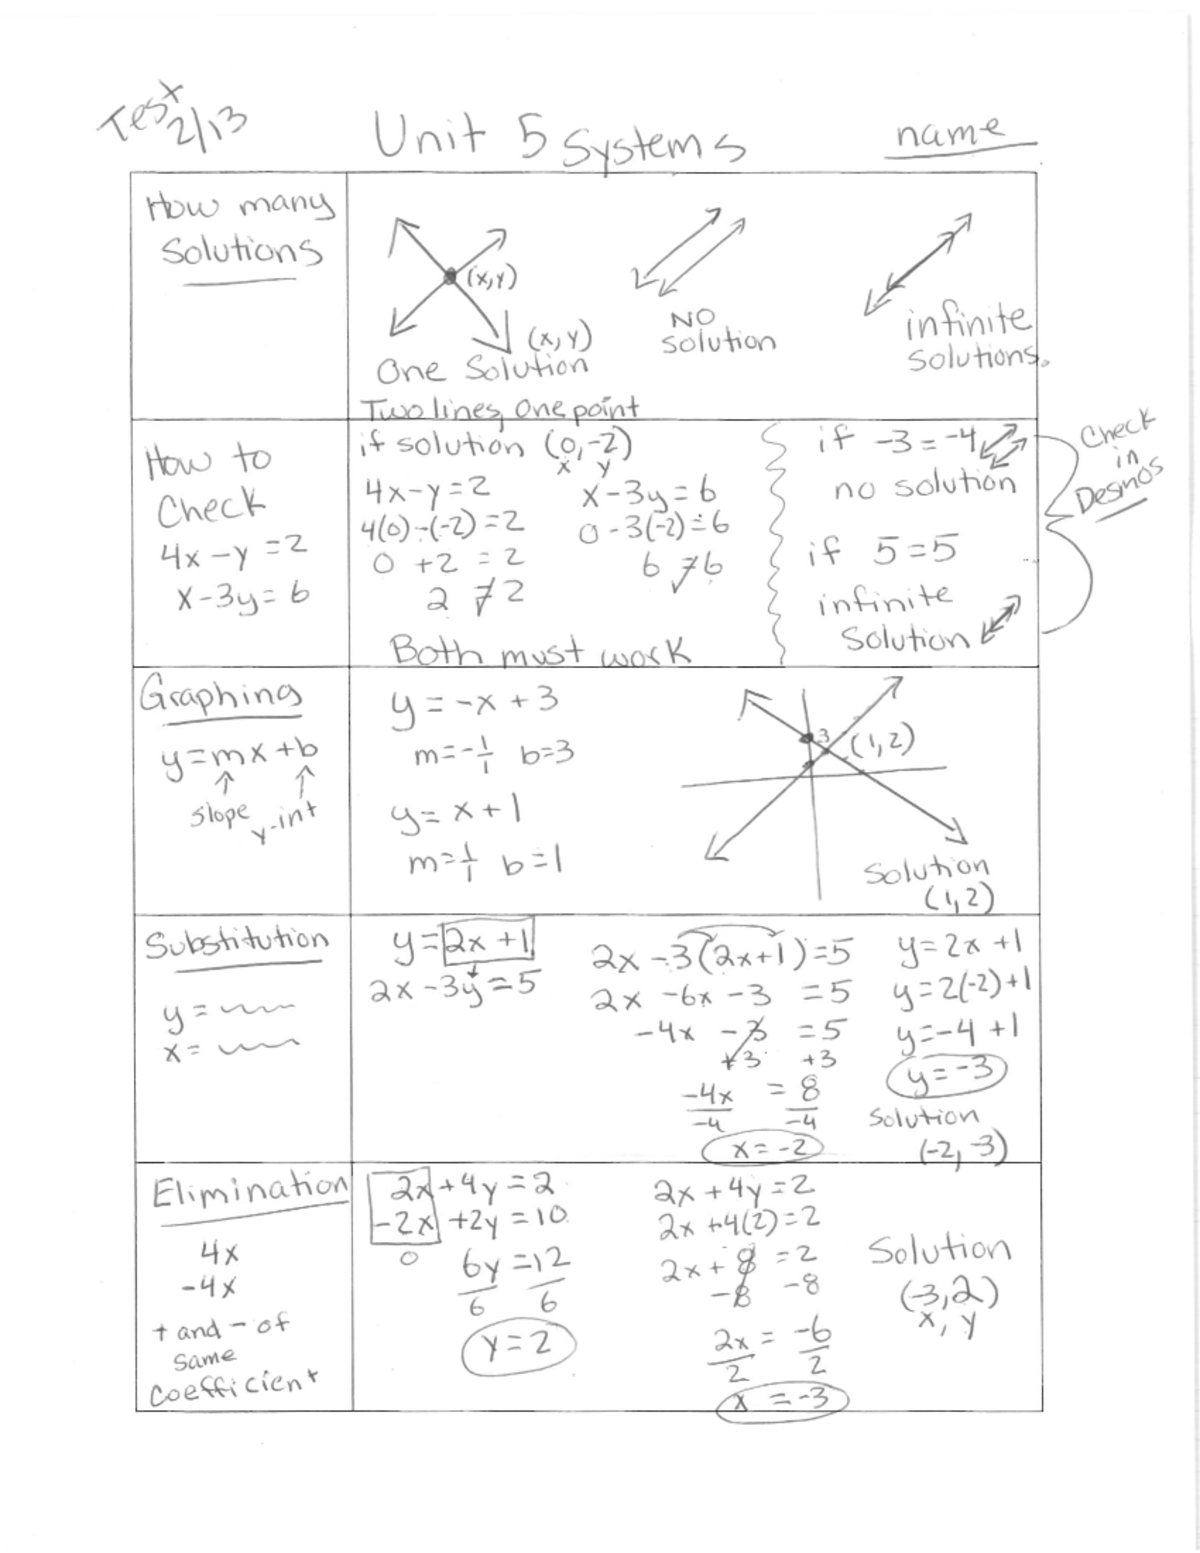 Test
2/13
Unit 5 Systems
name
How many
Solutions
(x,y)
(x,y)
One Solution
Two lines, One point
NO
solution
infinite
solutions.
How to
Check
4x-y=2
x-3y=6
if solution (0,-2)
x y
4x-y=2
4(0)-(-2)=2
0+2=2
2=2
x-3y=6
0-3(-2)=6
6=6
Both must work
if -3=-4
no solution
if 5=5
infinite
Solution
Check
in
Desmos
Graphing
y=mx+b
slope
y-int
y=-x+3
m=-1/1 b=3
y=x+1
m=1/1 b=1
3
(1,2)
Solution
(1,2)
Substitution
y=
x=
y=2x+1
2x-3y=5
2x-3(2x+1)=5
2x-6x-3=5
-4x-3=5
+3 +3
-4x=8
-4 -4
x=-2
y=2x+1
y=2(-2)+1
y=-4+1
y=-3
Solution
(-2,-3)
Elimination
4x
-4x
+ and - of
same
coefficient
2x+4y=2
-2x+2y=10
0
6y=12
6 6
y=2
2x+4y=2
2x+4(2)=2
2x+8=2
-8 -8
2x=-6
2 2
x=-3
Solution
(-3,2)
x, y